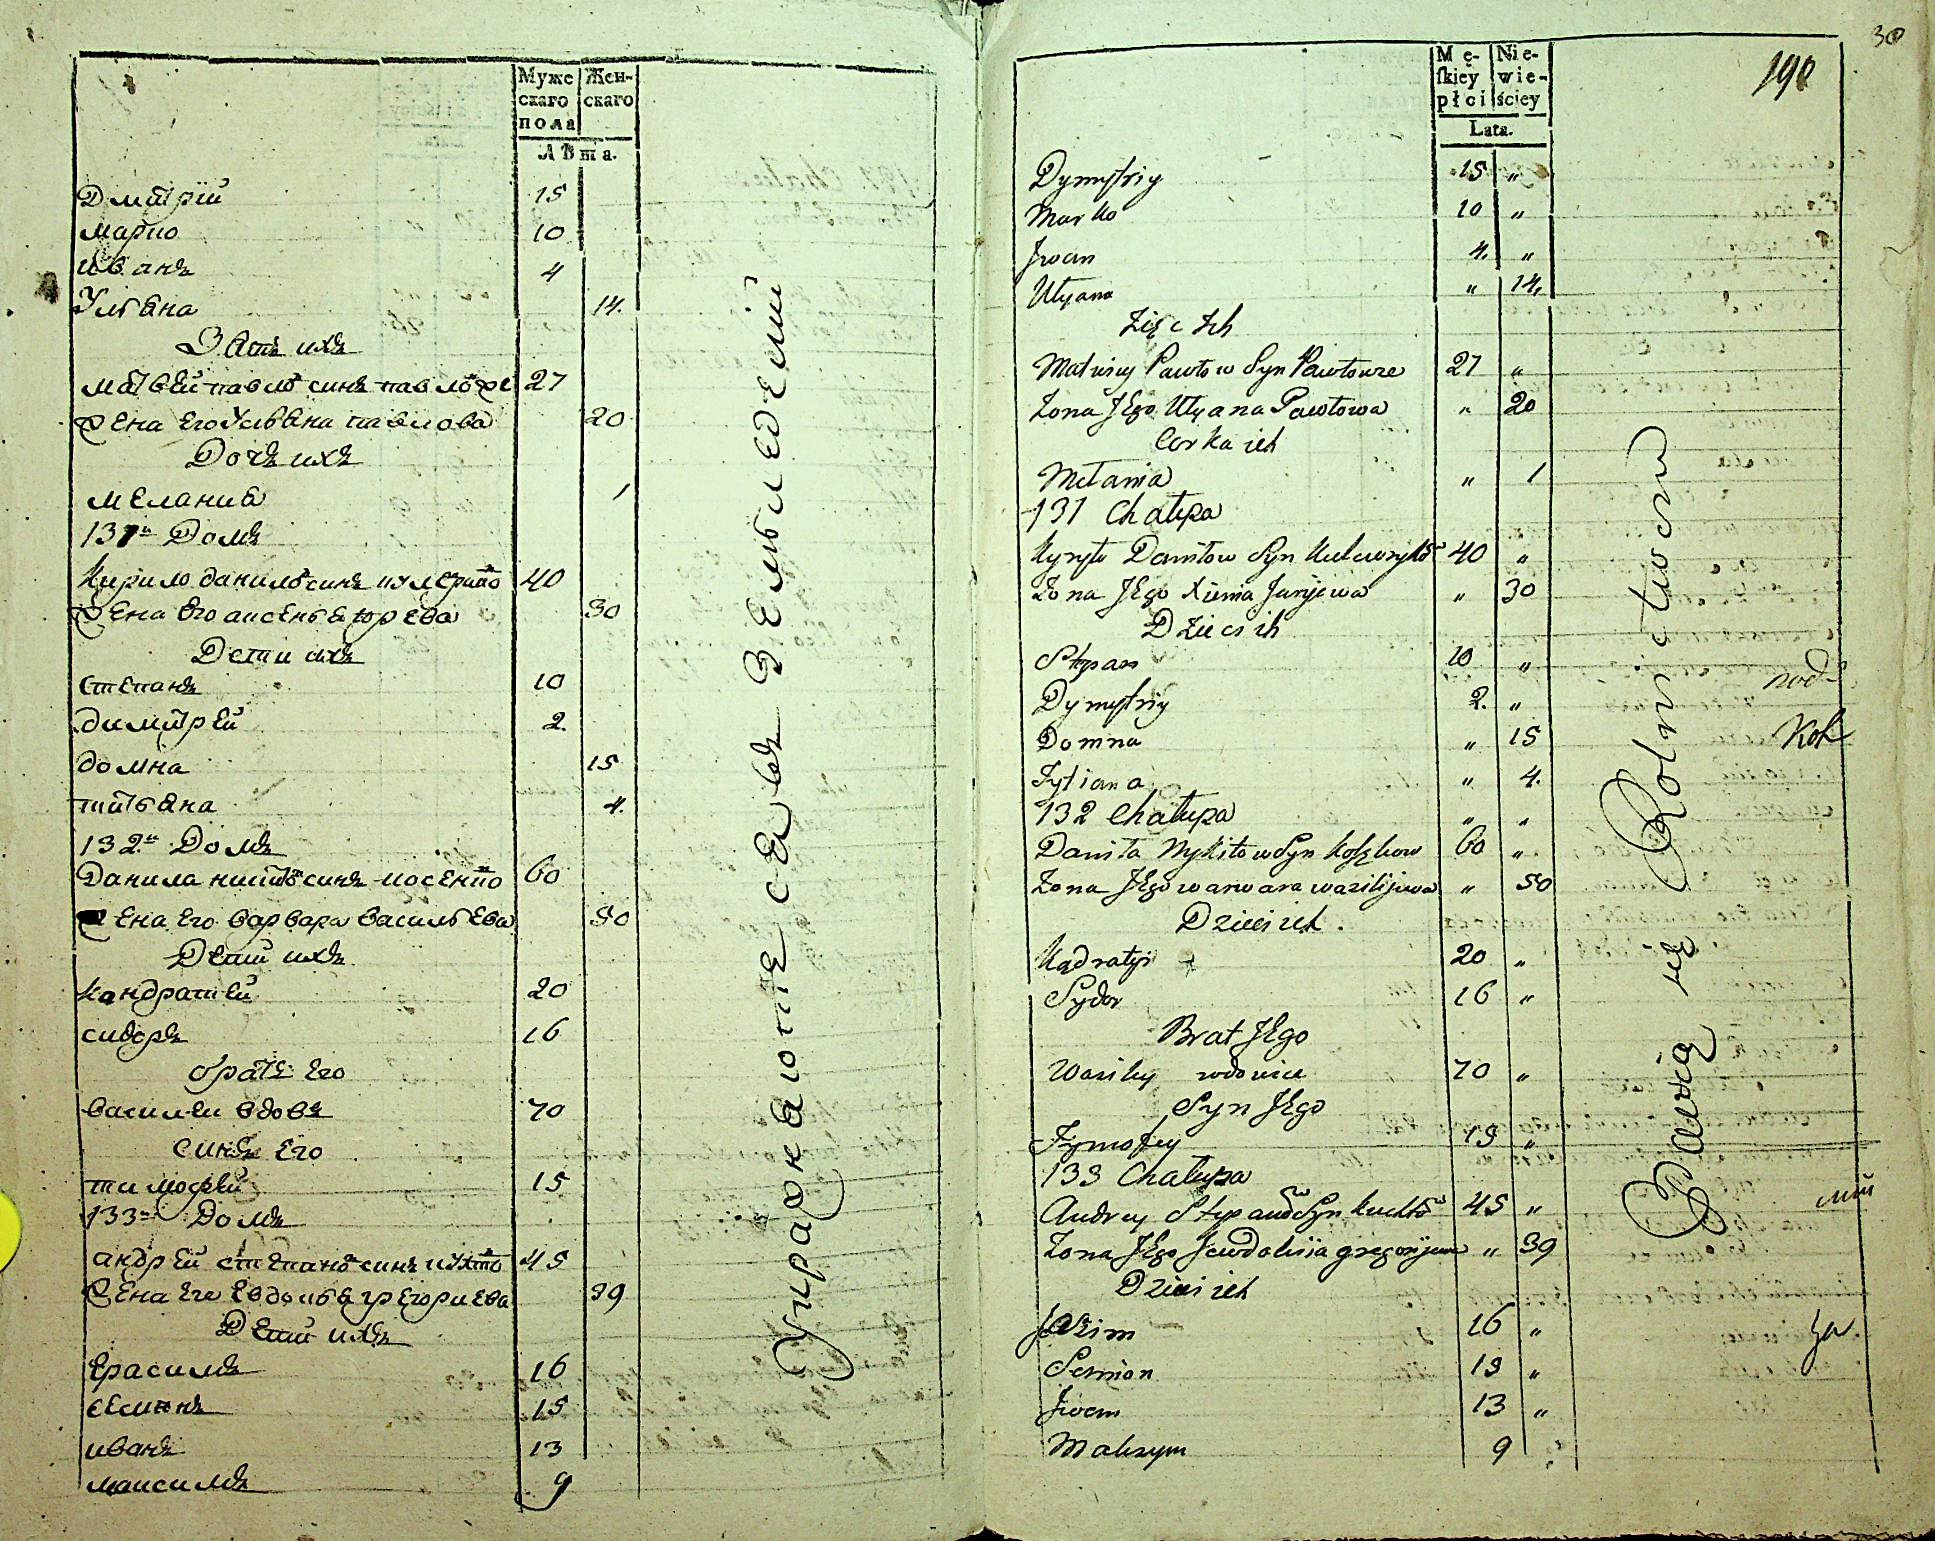 Муже Жен-
скаго скаго
пола
Лѣта.
Дмитрій 15
марко 10
иванъ 4
Ульяна 14.
Зять ихъ
матвей павловъ синъ 27
жена его Ульяна павлова 20
Дочь ихъ
мелания 1
131й Домъ
Кирило даниловъ синъ 40
жена его аксенья юрева 30
Дети ихъ
степанъ 10
димитрей 2.
домна 15
титьяна 4.
132й Домъ
Данила никитовъ синъ косенко 60
жена его варвара васильева 50
Дети ихъ
Кондратей 20
сидоръ 16
братъ его
василеи вдовъ 70
синъ его
тимофей 15
133й Домъ
андрей степановъ синъ 45
жена его евдокья григориева 39
Дети ихъ
Ерасимъ 16
семионъ 15
иванъ 13
максимъ 9
Упражнаются въ земледелии
30
190
Mę- Nie-
skiey wie-
płci ściey
Lata.
Dymytriy 15 „
Marko 10 „
Jwan 4. „
Ulyana „ 14.
Zięc Ich
Matwiey Pawłow Syn 27 „
Zona Jego Ulyana Pawłowa „ 20
Corka ich
Mełania „ 1
131 Chałupa
Kyryło Daniłow Syn 40 „
Zona Jego Xienia Jurijewa „ 30
Dzieci ih
Stepan 10 „
Dymytriy 2. „
Domna „ 15
Tytiana „ 4.
132 Chałupa „ „
Daniła Mykitow Syn 60 „
Zona Jego warwara wasilijewa „ 50
Dzieci ich.
Kądratyi 20 „
Sydor 16 „
Brat Jego
Wasiley wdowiec 70 „
Syn Jego
Tymofey 15 „
133 Chałupa
Andrey Stepanow Syn 45 „
Zona Jego Jewdokiia gregorijewa „ 39
Dzieci ich
16 „
Semion 15 „
Jwan 13 „
Maksym 9
Bawią się Rolnictwem